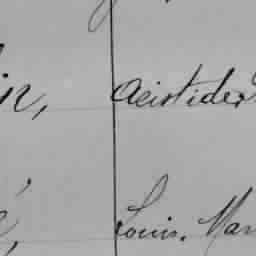 in, Aristides
é, Louis. Mar